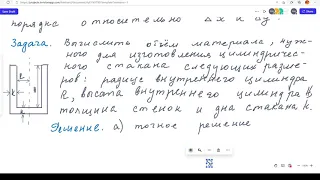 порядка относительно Δx и Δy
Задача. Вычислить объём материала, нуж-
ного для изготовления цилиндричес-
кого стакана следующих разме-
ров: радиус внутреннего цилиндра
R, высота внутреннего цилиндра H,
толщина стенок и дна стакана k.
Решение. а) точное решение